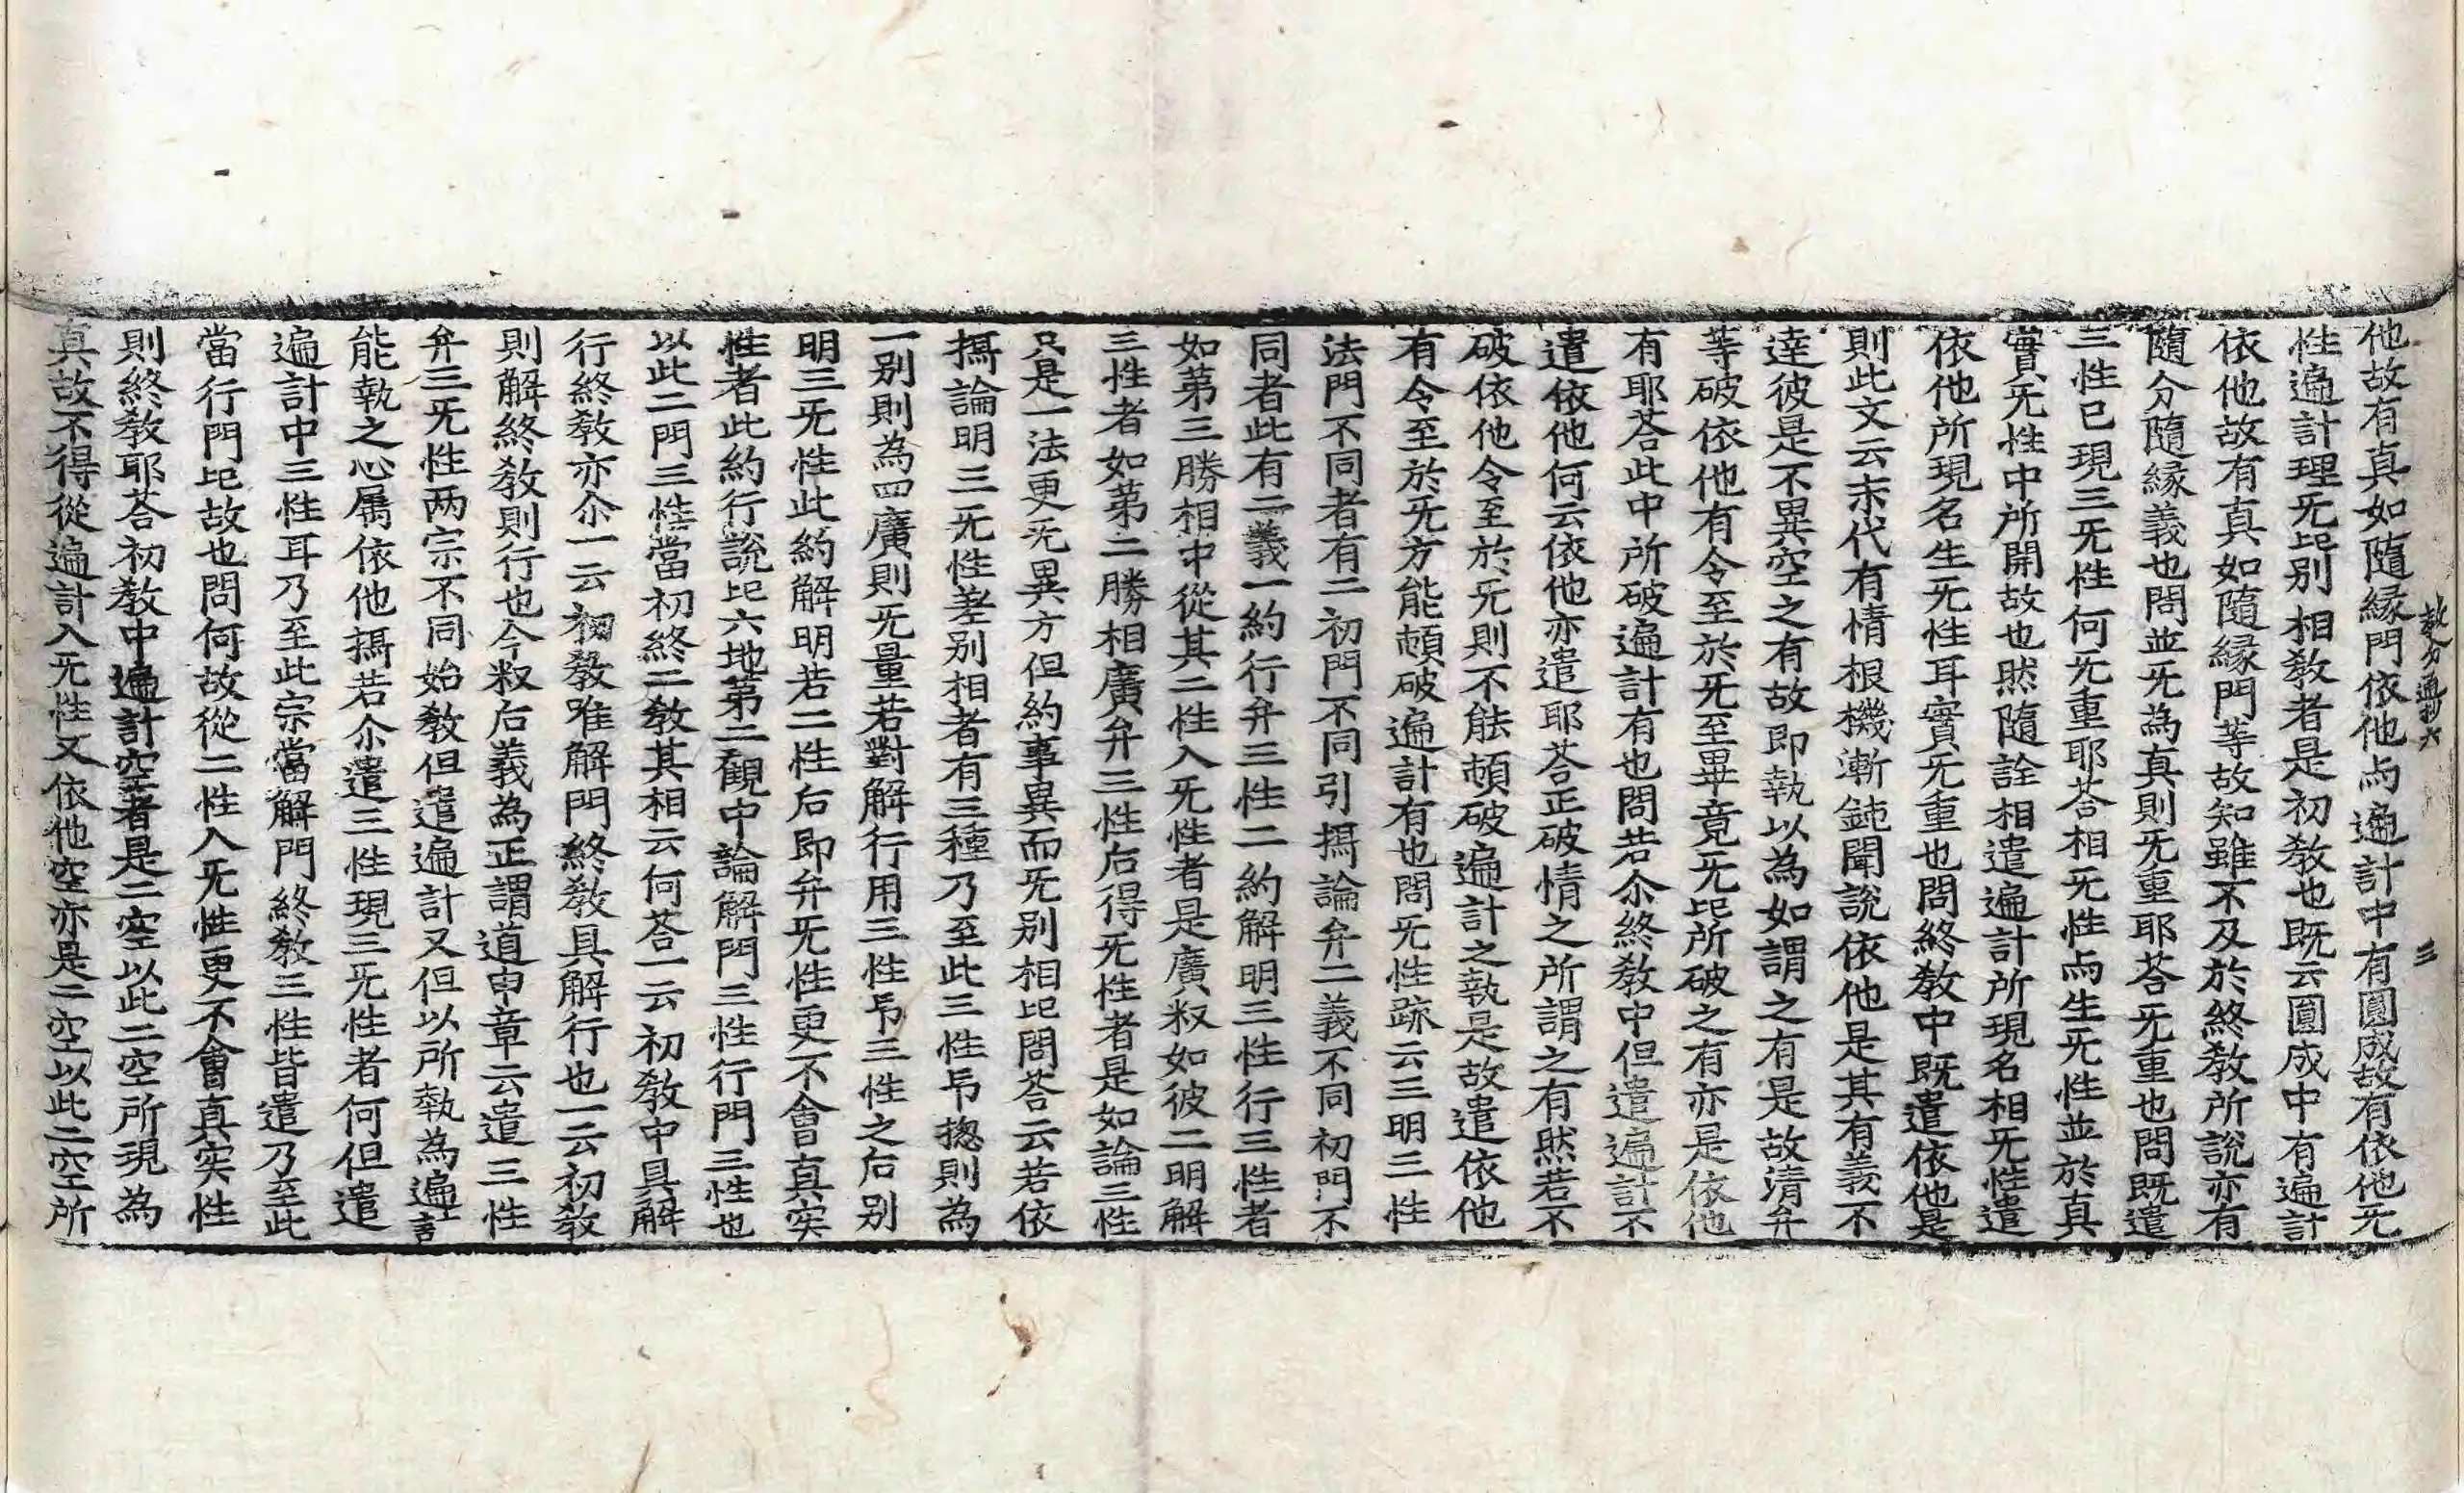 教分通抄六　三
他故有真如隨緣門依他与遍計中有圓成故有依他旡
性遍計理旡此别相教者是初教也既云圓成中有遍計
依他故有真如隨緣門等故知雖不及於終教所說亦有
隨分隨緣義也問並旡為真則旡重耶荅旡重也問既遣
三性已現三旡性何旡重耶荅相旡性与生旡性並於真
實旡性中所開故也然隨詮相遣遍計所現名相旡性遣
依他所現名生旡性耳實旡重也問終教中既遣依他是
則此文云末代有情根機漸鈍聞說依他是其有義不
達彼是不異空之有故即執以為如謂之有是故清弁
等破依他有令至於旡至畢竟旡此所破之有亦是依他
有耶荅此中所破遍計有也問若尒終教中但遣遍計不
遣依他何云依他亦遣耶荅正破情之所謂之有然若不
破依他令至於旡則不能頓破遍計之執是故遣依他
有令至於旡方能頓破遍計有也問旡性䟽云三明三性
法門不同者有二初門不同引攝論弁二義不同初門不
同者此有二義一約行弁三性二約解明三性行三性者
如第三勝相中從其二性入旡性者是廣釈如彼二明解
三性者如第二勝相廣弁三性后得旡性者是如論三性
只是一法更旡異方但約事異而旡别相此問荅云若依
攝論明三旡性差别相者有三種乃至此三性号揔則為
一别則為四廣則旡量若對解行用三性号三性之后别
明三旡性此約解明若二性后即弁旡性更不會真实
性者此約行說此六地第二觀中論解門三性行門三性也
以此二門三性當初終二教其相云何荅一云初教中具解
行終教亦尒一云初教唯解門終教具解行也一云初教
則解終教則行也今釈后義為正謂道申章云遣三性
弁三旡性两宗不同始教但遣遍計又但以所執為遍言
能執之心属依他攝若尒遣三性現三旡性者何但遣
遍計中三性耳乃至此宗當解門終教三性皆遣乃至此
當行門此故也問何故從二性入旡性更不會真实性
則終教耶荅初教中遍計空者是二空以此二空所現為
真故不得從遍計入旡性又依他空亦是二空以此二空所